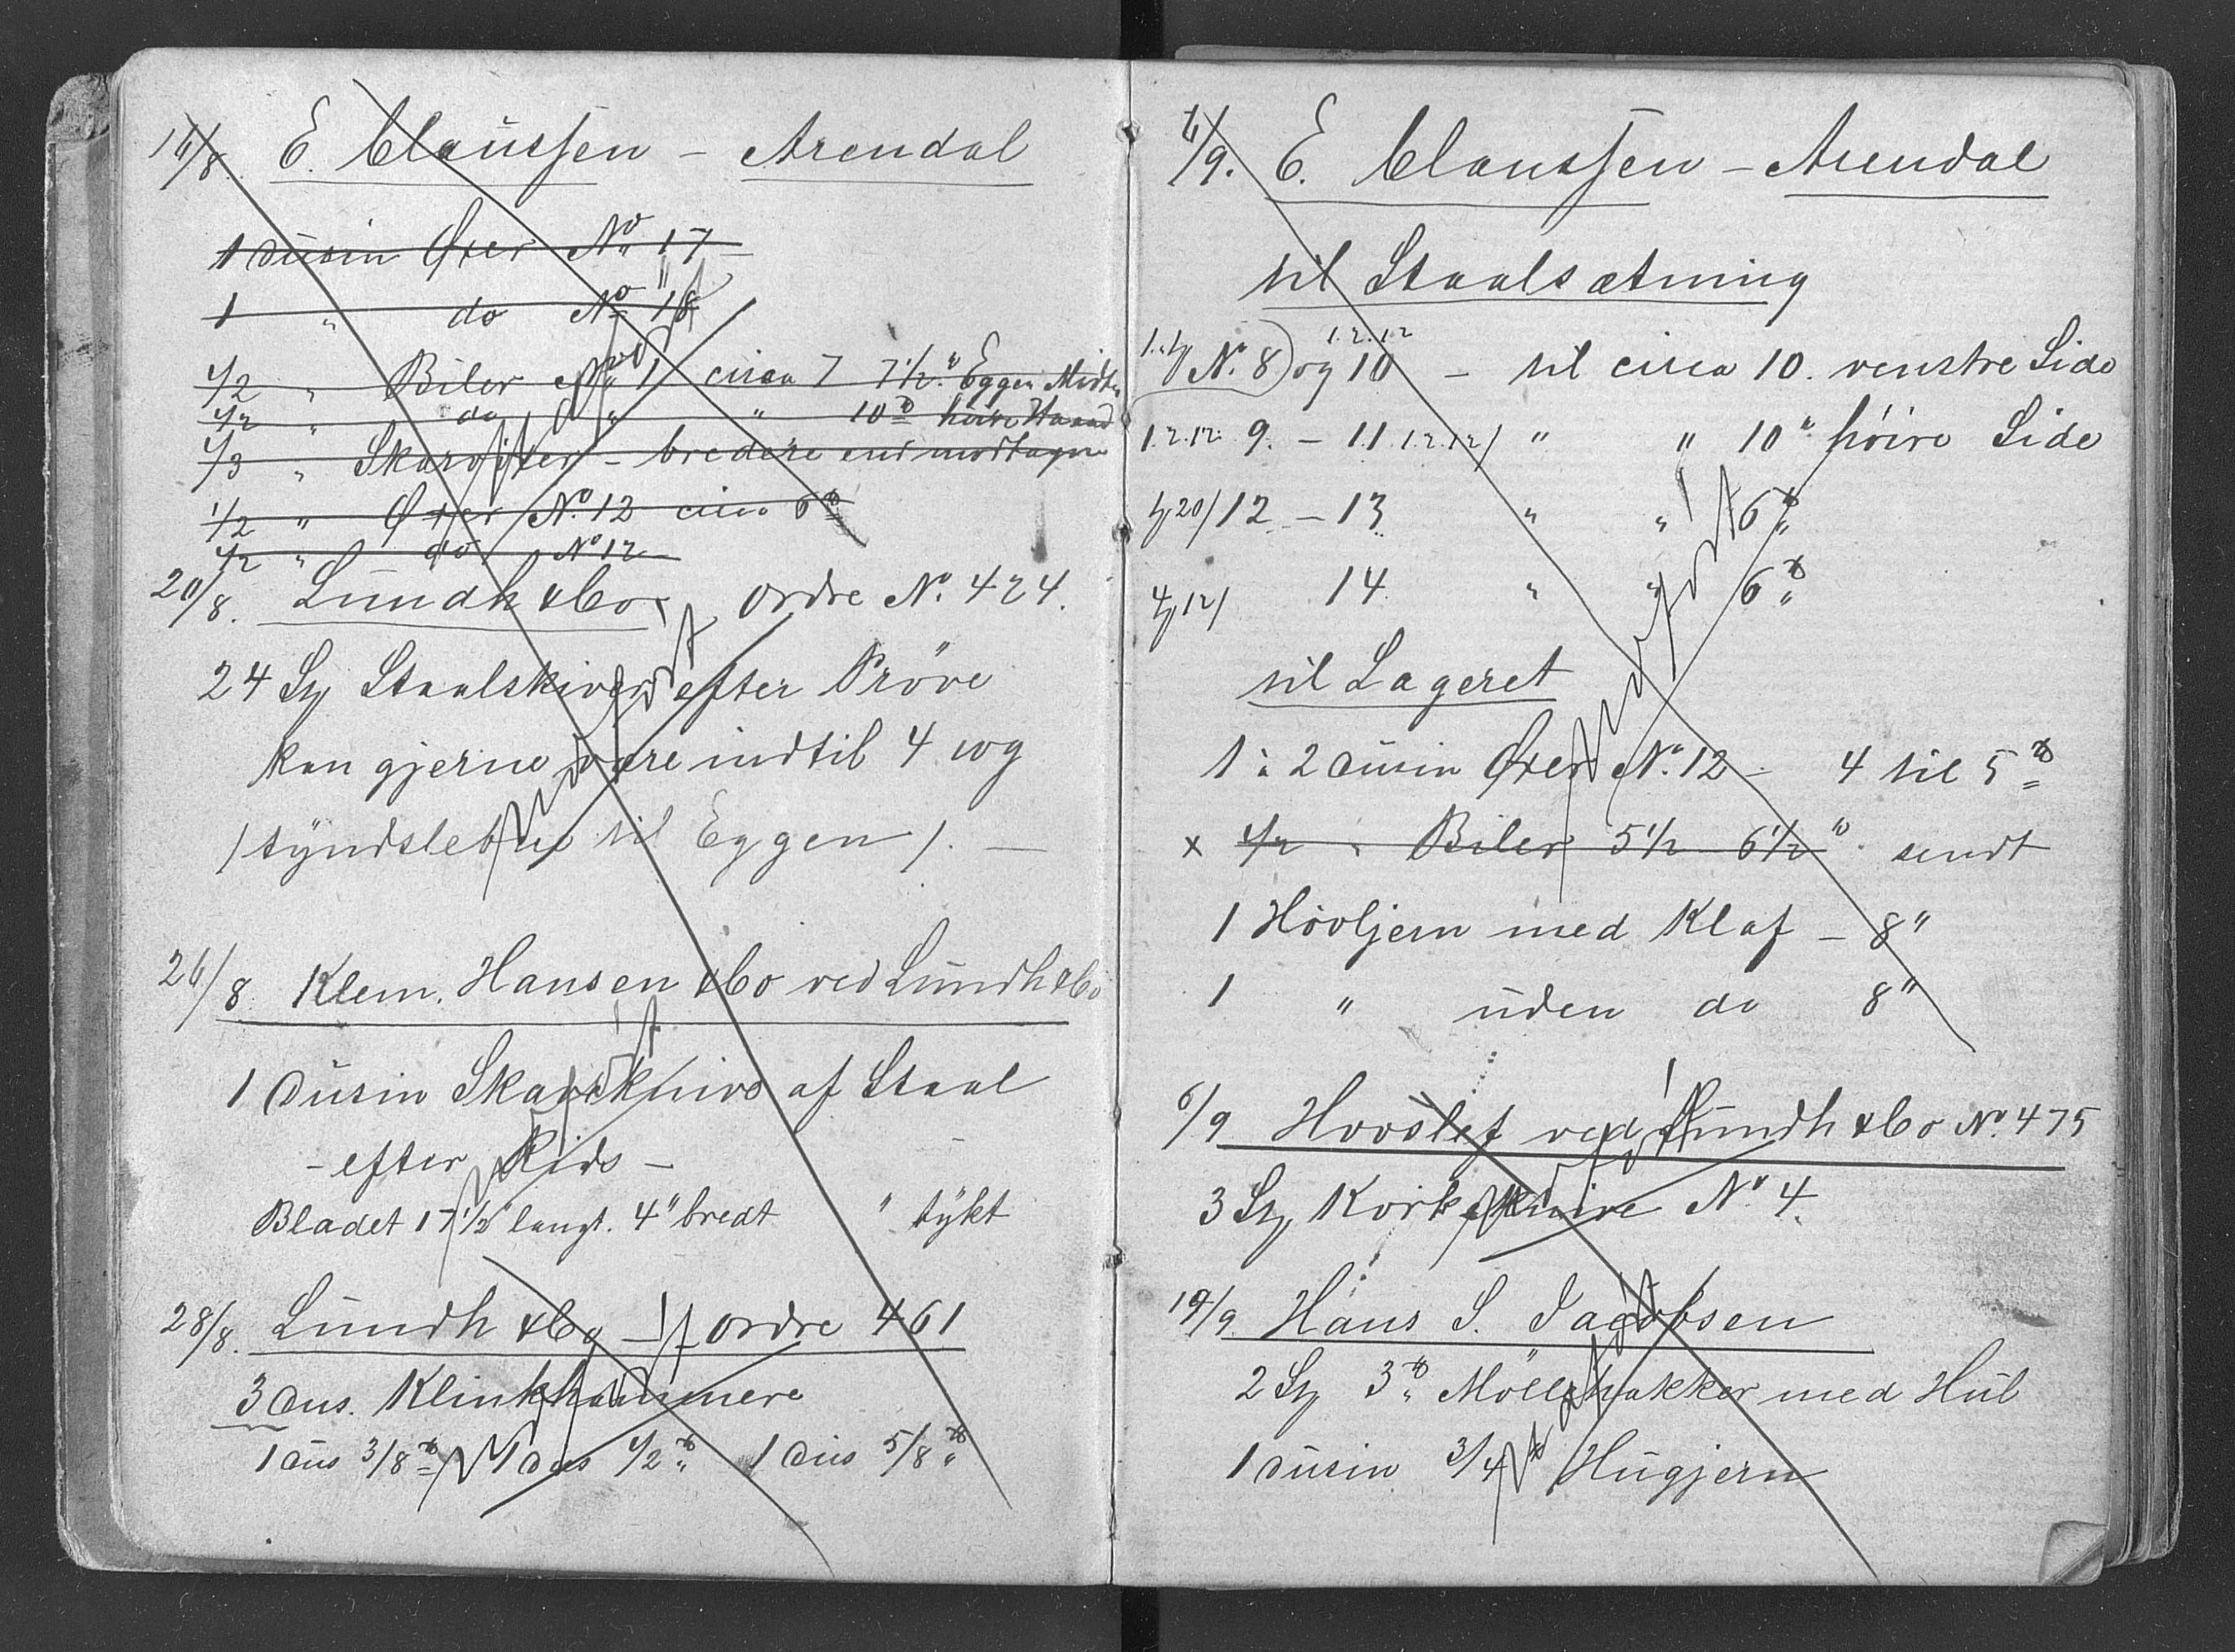 16/8. E. Claussen - Arendal
1 Dusin Øxer No 17 -
1 " do No 18
1/2 " Biler No 1 circa 7 7 1/2" Eggen Midt
1/2 " do " " 10" høire Haand
1/3 " Skarøxer - bredere end modtagne
1/2 " Øxer No. 12 circa 6 ℔
1/2 " do No 12 -
20/8. Lundh & Co. Ordre No. 424.
24 St Staalskiver efter Pröve
kan gjerne være indtil 4 wg
/ tyndslebne til Eggen /. -
26/8. Klem. Hansen & Co ved Lundh & Co
1 Dusin Skaveknive af Staal
- efter Rids -
Bladet 17 1/2" langt. 4" bredt " tykt
28/8. Lundh & Co - Ordre 461
3 Dus. Klinkhammere
1 Dus 3/8 ℔ 1 Dus 1/2 ℔ 1 Dus 5/8 ℔
6/9. E. Claussen - Arendal
til Staalsætning
No. 8) og 10 1.2.12 - til circa 10. venstre Side
1.2.12. 9. - 11 1.2.12/ " " 10" höire Side
20/12 - 13 " " 6 ℔
12/ 14 " " 6 ℔
til Lageret
1 à 2 Dusin Øxer No. 12 - 4 til 5 ℔
x 1/2 " Biler 5 1/2 6 1/2" sendt
1 Hövljern med Klaf - 8"
1 " uden do 8"
6/9 Hovslef ved Lundh & Co No. 475
3 St Korkeknive No 4.
19/9. Hans S. Jacobsen
2 St 3 ℔ Möllehakker med Hul
1 Dusin 3/4 ℔ Hugjern